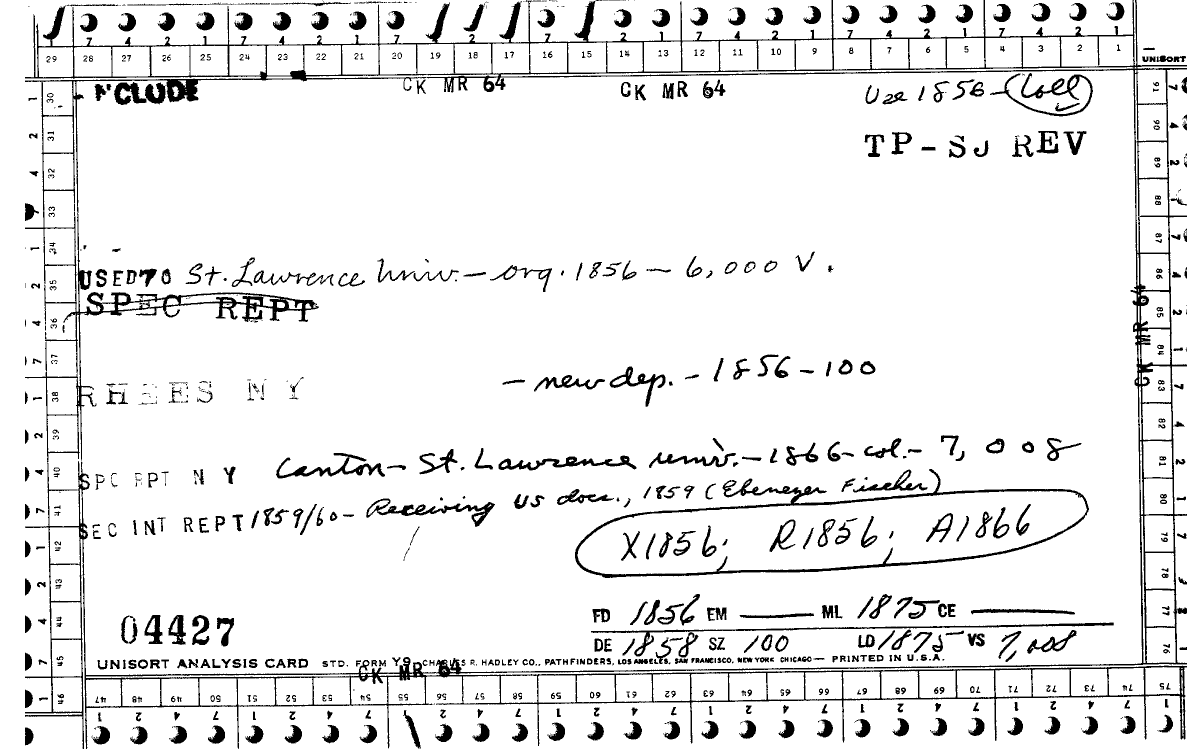 7 4 2 1 7 4 2 1 7 7 4 2 1 7 4 2 1 7 4 2 1
29 28 27 26 25 24 23 22 21 20 19 18 17 16 15 14 13 12 11 10 9 8 7 6 5 4 3 2 1
UNISORT
CLUDE CK MR 64 CK MR 64 Use 1856 - Coll
TP - SJ REV
USED70 St. Lawrence Univ. - org. 1856 - 6,000 V.
SPEC REPT
RHEES N Y - new dep. - 1856 - 100
CK MR 64
SPC RPT N Y Canton - St. Lawrence univ. - 1866 - col. - 7,008
SEC INT REPT 1859/60 - Receiving US docs., 1859 (Ebenezer Fischer)
X1856; R1856; A1866
04427
FD 1856 EM ML 1875 CE
DE 1858 SZ 100 LD 1875 VS 7,008
UNISORT ANALYSIS CARD STD. FORM Y9 CHARLES R. HADLEY CO., PATHFINDERS, LOS ANGELES, SAN FRANCISCO, NEW YORK CHICAGO — PRINTED IN U.S.A.
CK MR 64
47 48 49 50 51 52 53 54 55 56 57 58 59 60 61 62 63 64 65 66 67 68 69 70 71 72 73 74 75